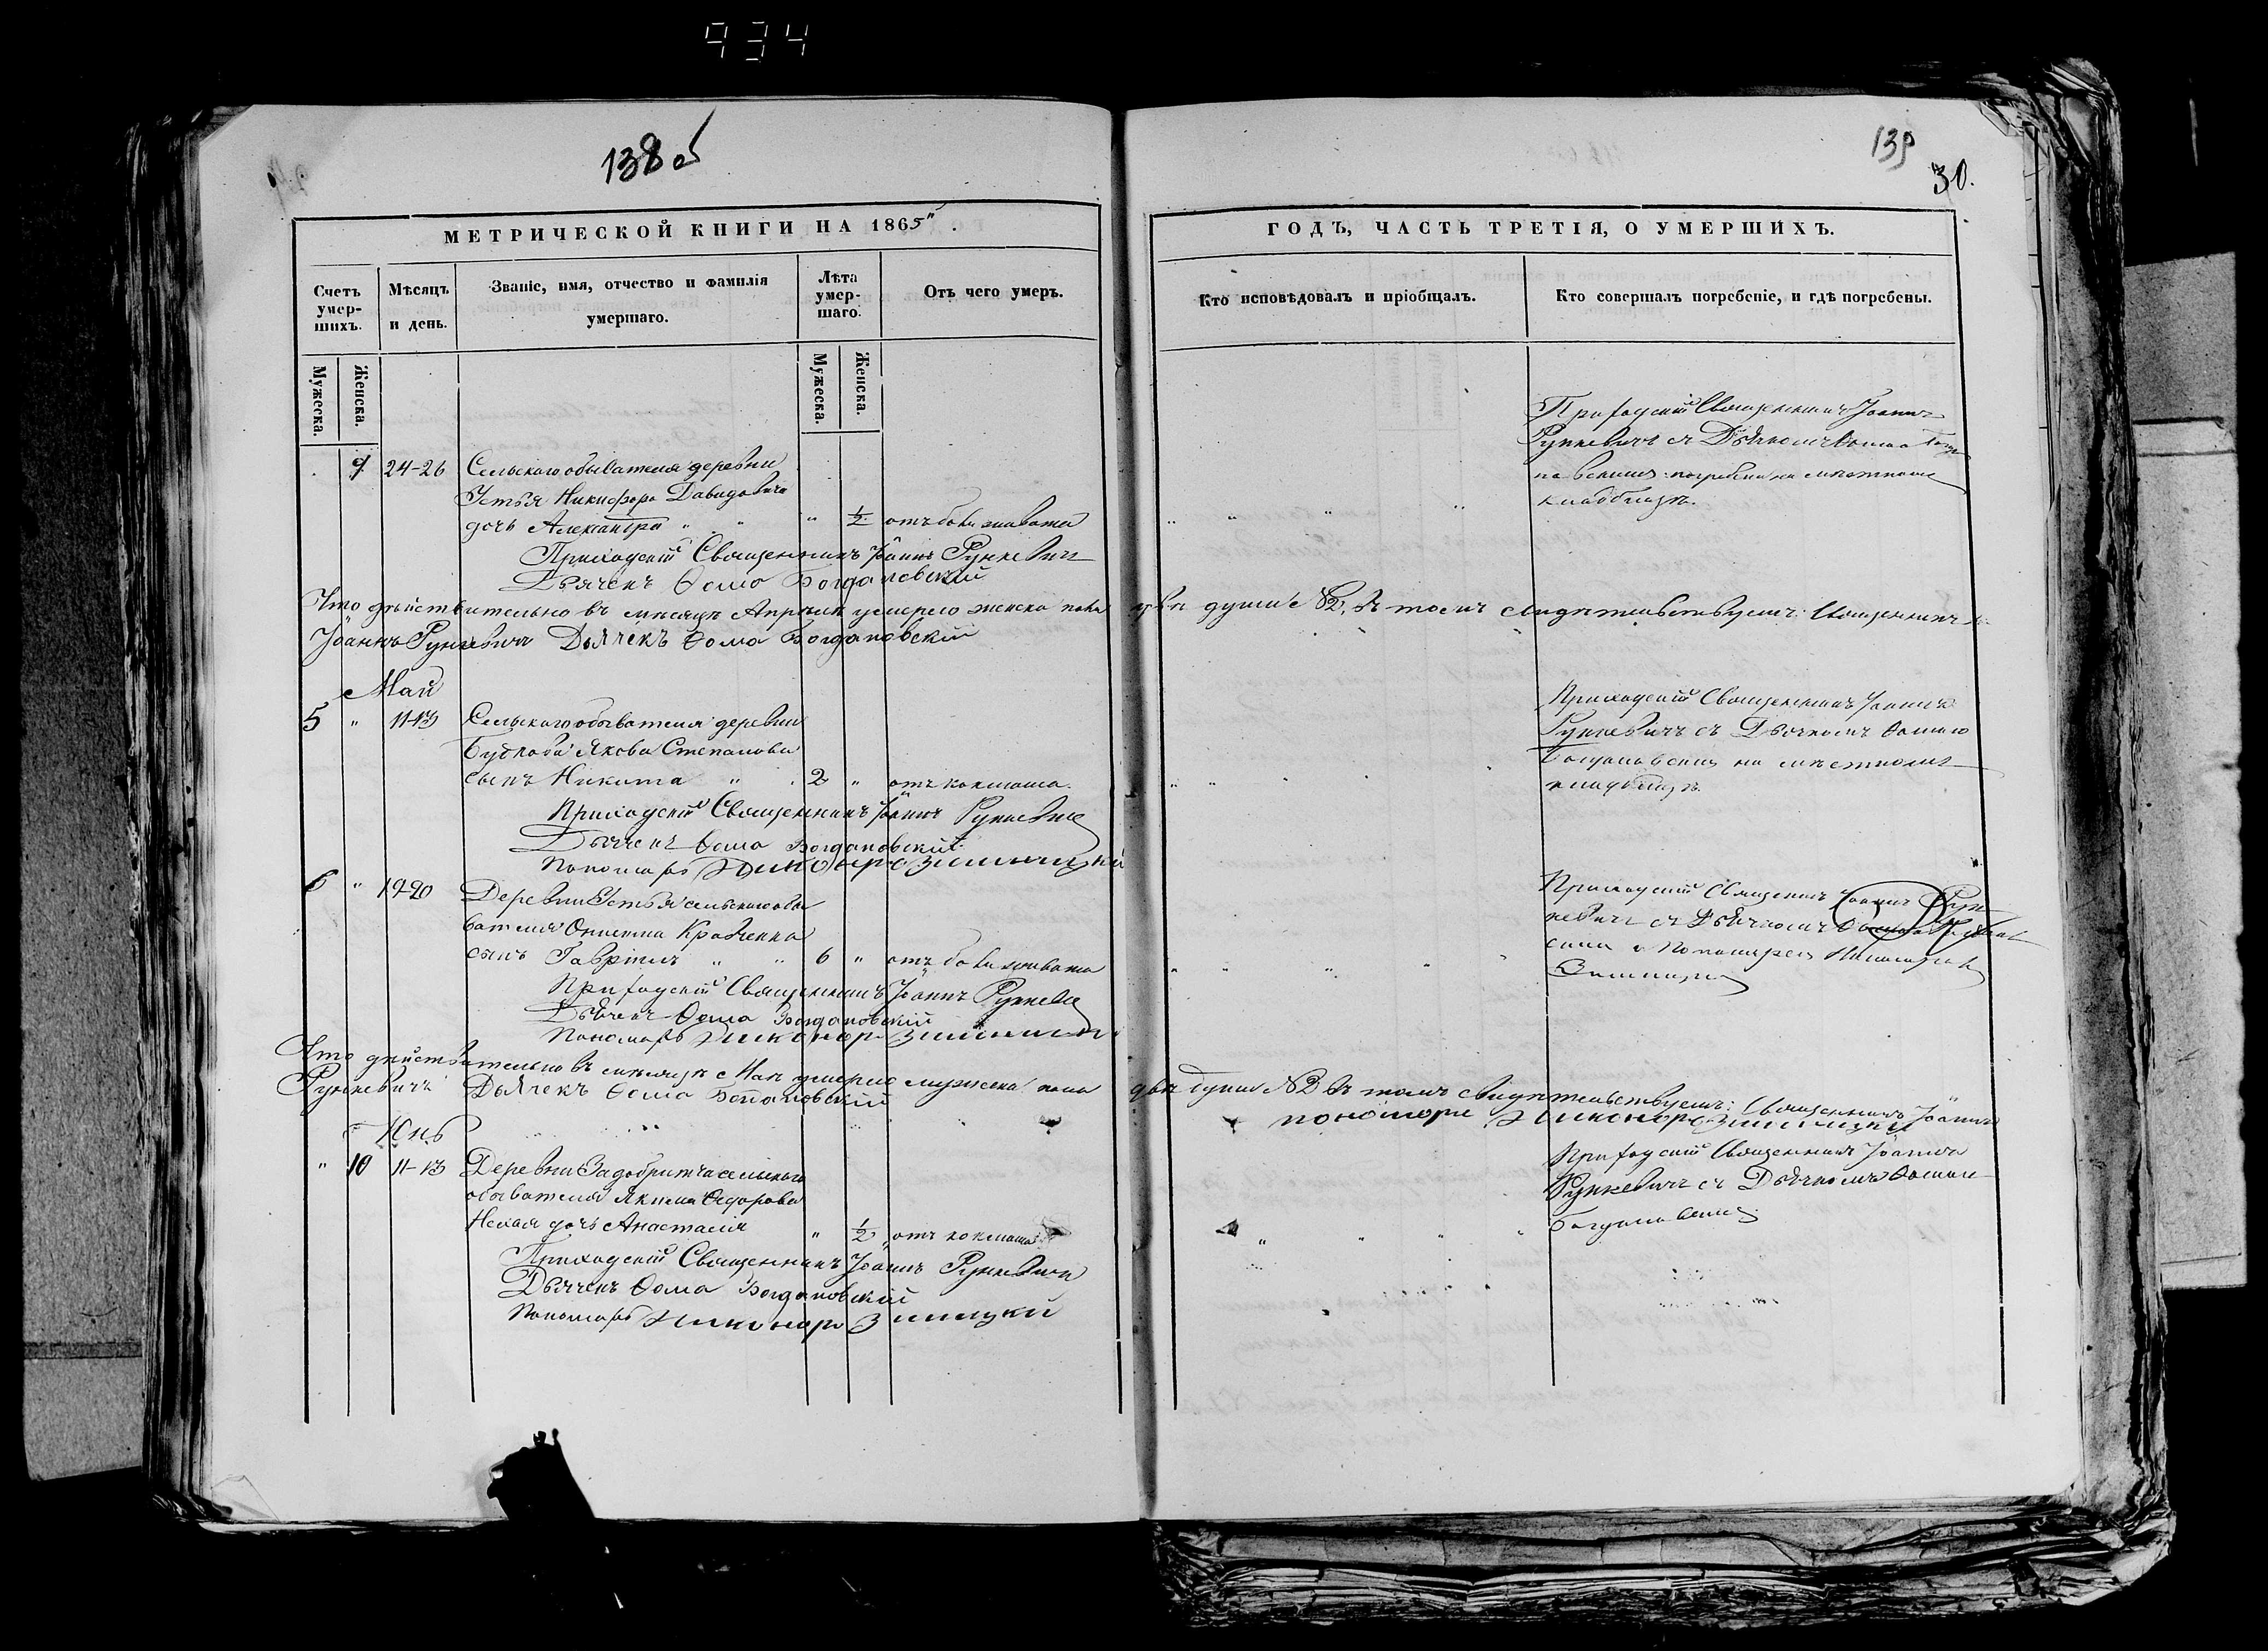 934
138 об
139
30.
МЕТРИЧЕСКОЙ КНИГИ НА 1865
ГОДЪ, ЧАСТЬ ТРЕТІЯ, О УМЕРШИХЪ.
Счетъ умер-шихъ.
Мѣсяцъ и день.
Званіе, имя, отчество и фамилія
умершаго.
Лѣта умер-шаго.
Отъ чего умеръ.
Кто исповѣдовалъ и пріобщалъ.
Кто совершалъ погребеніе, и гдѣ погребены.
Мужеска.
Женска.
Мужеска.
Женска.
9 24-26 Сельскаго обывателя деревни
Устья Никифора Давидовича
дочь Александра " " " ½ отъ боли живота
Приходскій Священникъ Іоаннъ
Рункевичъ съ Дьячкомъ Ѳомою Богда
новскимъ погребены на мѣстномъ
кладбищѣ.
Приходскій Священникъ Іоаннъ Рункевичъ
Дьячекъ Ѳома Богдановскій
Что дѣйствительно въ мѣсяцѣ Апрѣлѣ умерло женска пола двѣ души №2, въ томъ свидѣтельствуемъ: Священникъ
Іоаннъ Рункевичъ Дьячекъ Ѳома Богдановскій
Май
5 " 11-13 Сельскаго обывателя деревни
Якова Степанова
сынъ Никита " 2 " отъ коклюша.
Приходскій Священникъ Іоаннъ
Рункевичъ съ Дьячкомъ Ѳомою
Богдановскимъ на мѣстномъ
кладбищѣ.
Приходскій Священникъ Іоаннъ Рункевичъ
Дьячекъ Ѳома Богдановскій
Пономарь Никаноръ Зимницкій
6 " 19-20 Деревни Устья сельскаго обы
вателя Кравченка
сынъ Гавріилъ " " 6 " отъ боли живота
Приходскій Священникъ Іоаннъ Рун
кевичъ съ Дьячкомъ Ѳомою
и Пономаремъ Никаноромъ
Зимницкимъ
Приходскій Священникъ Іоаннъ Рункевичъ
Дьячекъ Ѳома Богдановскій
Пономарь Никаноръ Зимницкій
Что дѣйствительно въ мѣсяцѣ Маѣ умерло мужеска пола двѣ души №2 въ томъ свидѣтельствуемъ: Священникъ Іоаннъ
Рункевичъ Дьячекъ Ѳома Богдановскій пономарь Никаноръ Зимницкій
Юнь
" 10 11-13 Деревни Задобритча сельскаго
обывателя Якима Ѳедорова
дочь Анастасія " ½ отъ коклюша
Приходскій Священникъ Іоаннъ
Рункевичъ съ Дьячкомъ Ѳомою
Богдановскимъ
Приходскій Священникъ Іоаннъ Рункевичъ
Дьячекъ Ѳома Богдановскій
Пономарь Никаноръ Зимницкій